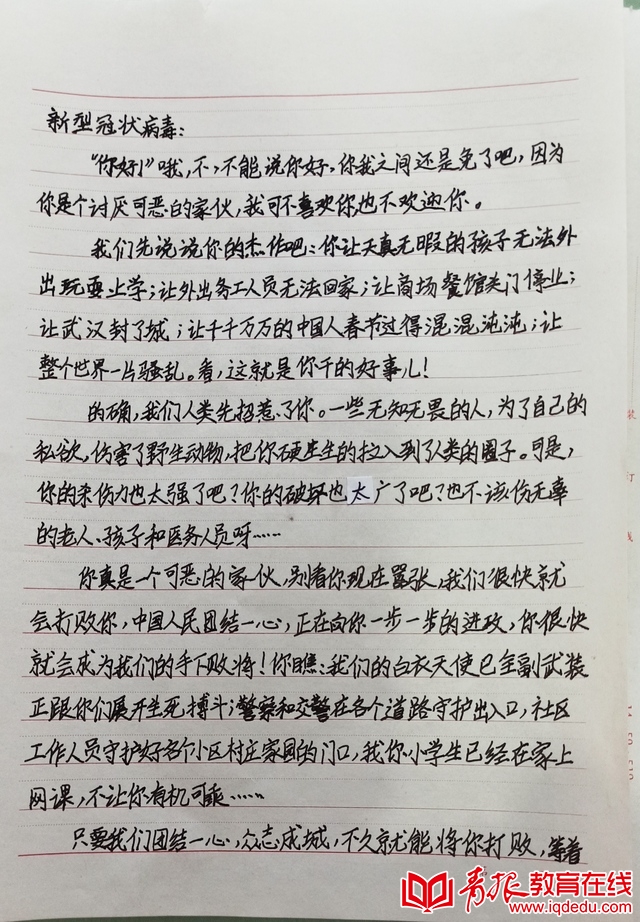 新型冠状病毒：
“你好！”哦，不，不能说你好，你我之间还是免了吧，因为
你是个讨厌可恶的家伙，我可不喜欢你，也不欢迎你。
我们先说说你的杰作吧：你让天真无暇的孩子无法外
出玩耍上学；让外出务工人员无法回家；让商场餐馆关门停业；
让武汉封了城；让千千万万的中国人春节过得混混沌沌；让
整个世界一片骚乱。看，这就是你干的好事儿！
的确，我们人类先招惹了你。一些无知无畏的人，为了自己的
私欲，伤害了野生动物，把你硬生生的拉入到了人类的圈子。可是，
你的杀伤力也太强了吧？你的破坏也太广了吧？也不该伤无辜
的老人、孩子和医务人员呀……
你真是一个可恶的家伙，别看你现在嚣张，我们很快就
会打败你，中国人民团结一心，正在向你一步一步的进攻，你很快
就会成为我们的手下败将！你瞧：我们的白衣天使已全副武装
正跟你们展开生死搏斗；警察和交警在各个道路守护出入口，社区
工作人员守护好各个小区村庄家园的门口，我们小学生已经在家上
网课，不让你有机可乘……
只要我们团结一心，众志成城，不久就能将你打败，等着
装
订
线
青报教育在线
www.iqdedu.com